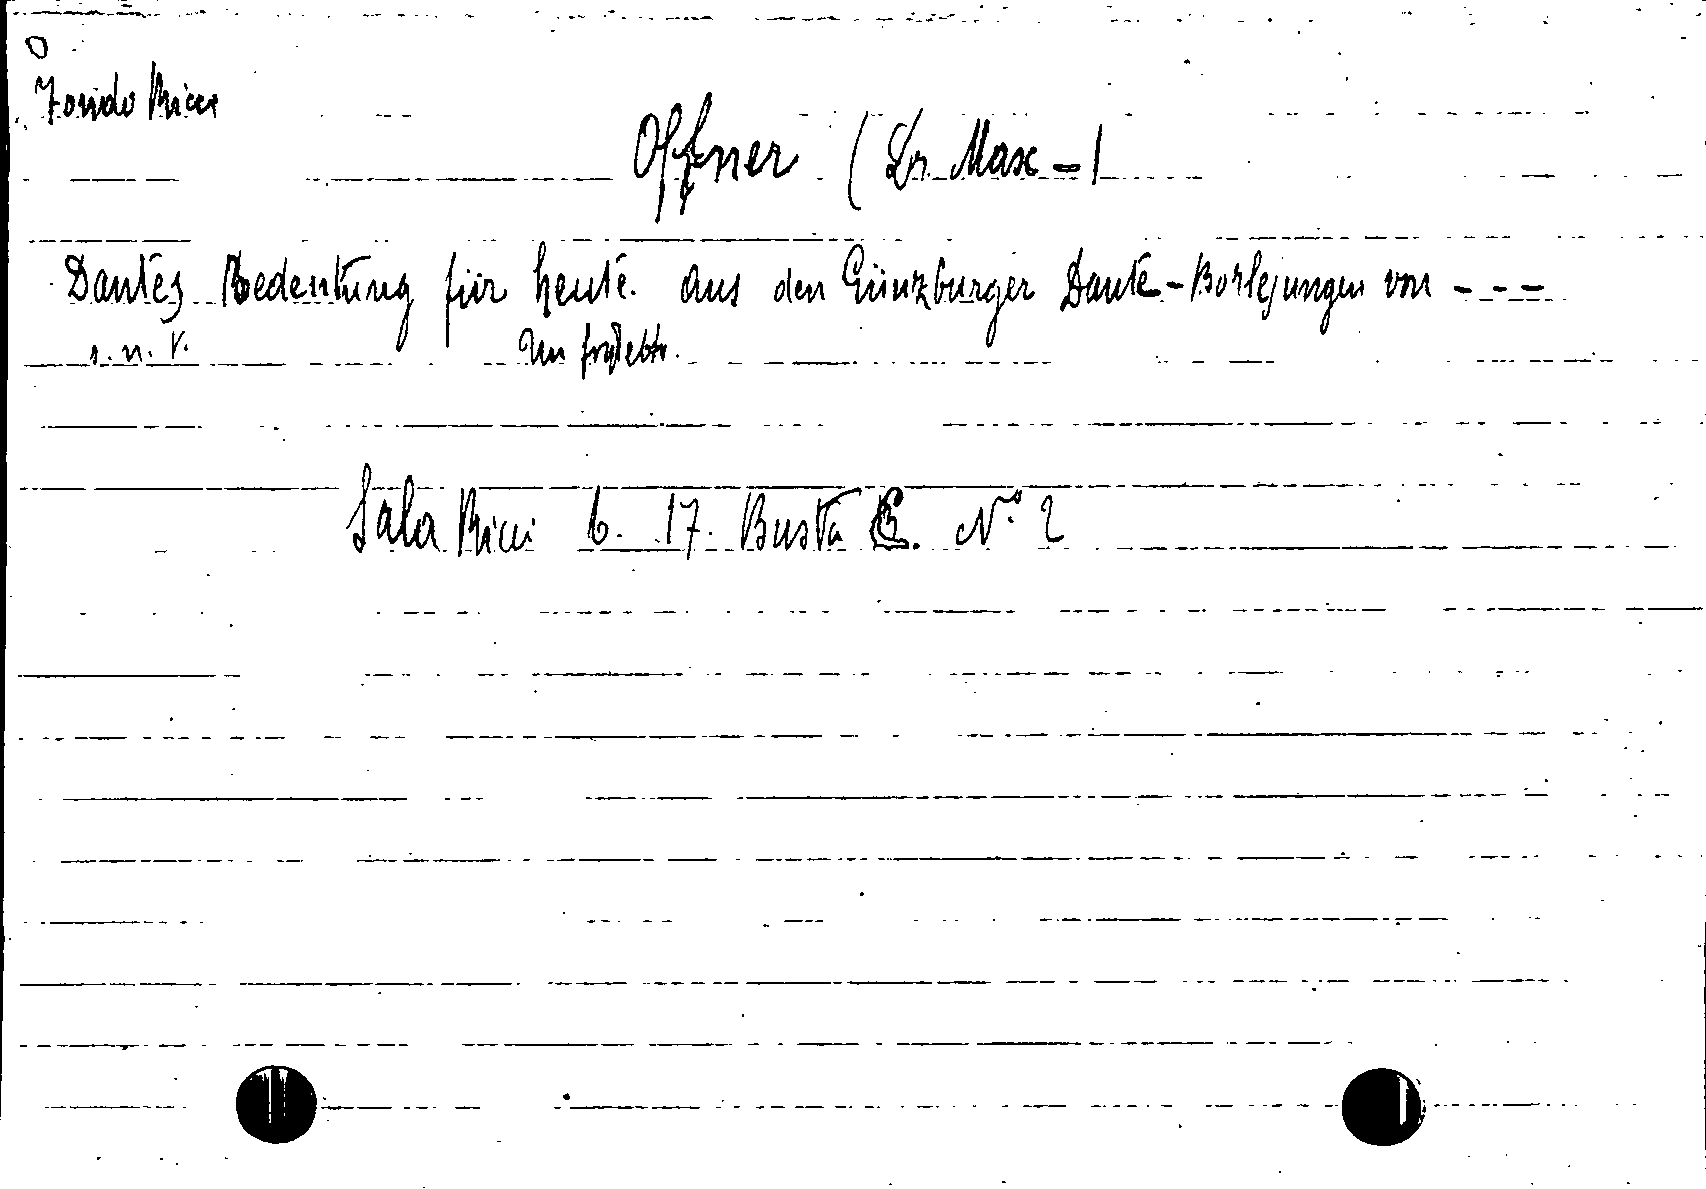 O
Fondo Ricci
Offner (Dr. Max -)
Dantes Bedeutung für heute. Aus den Günzburger Dante-Vorlesungen von ---
s. n. t. Un foglietto.
Sala Ricci 6. 17. Busta C. N.° 2